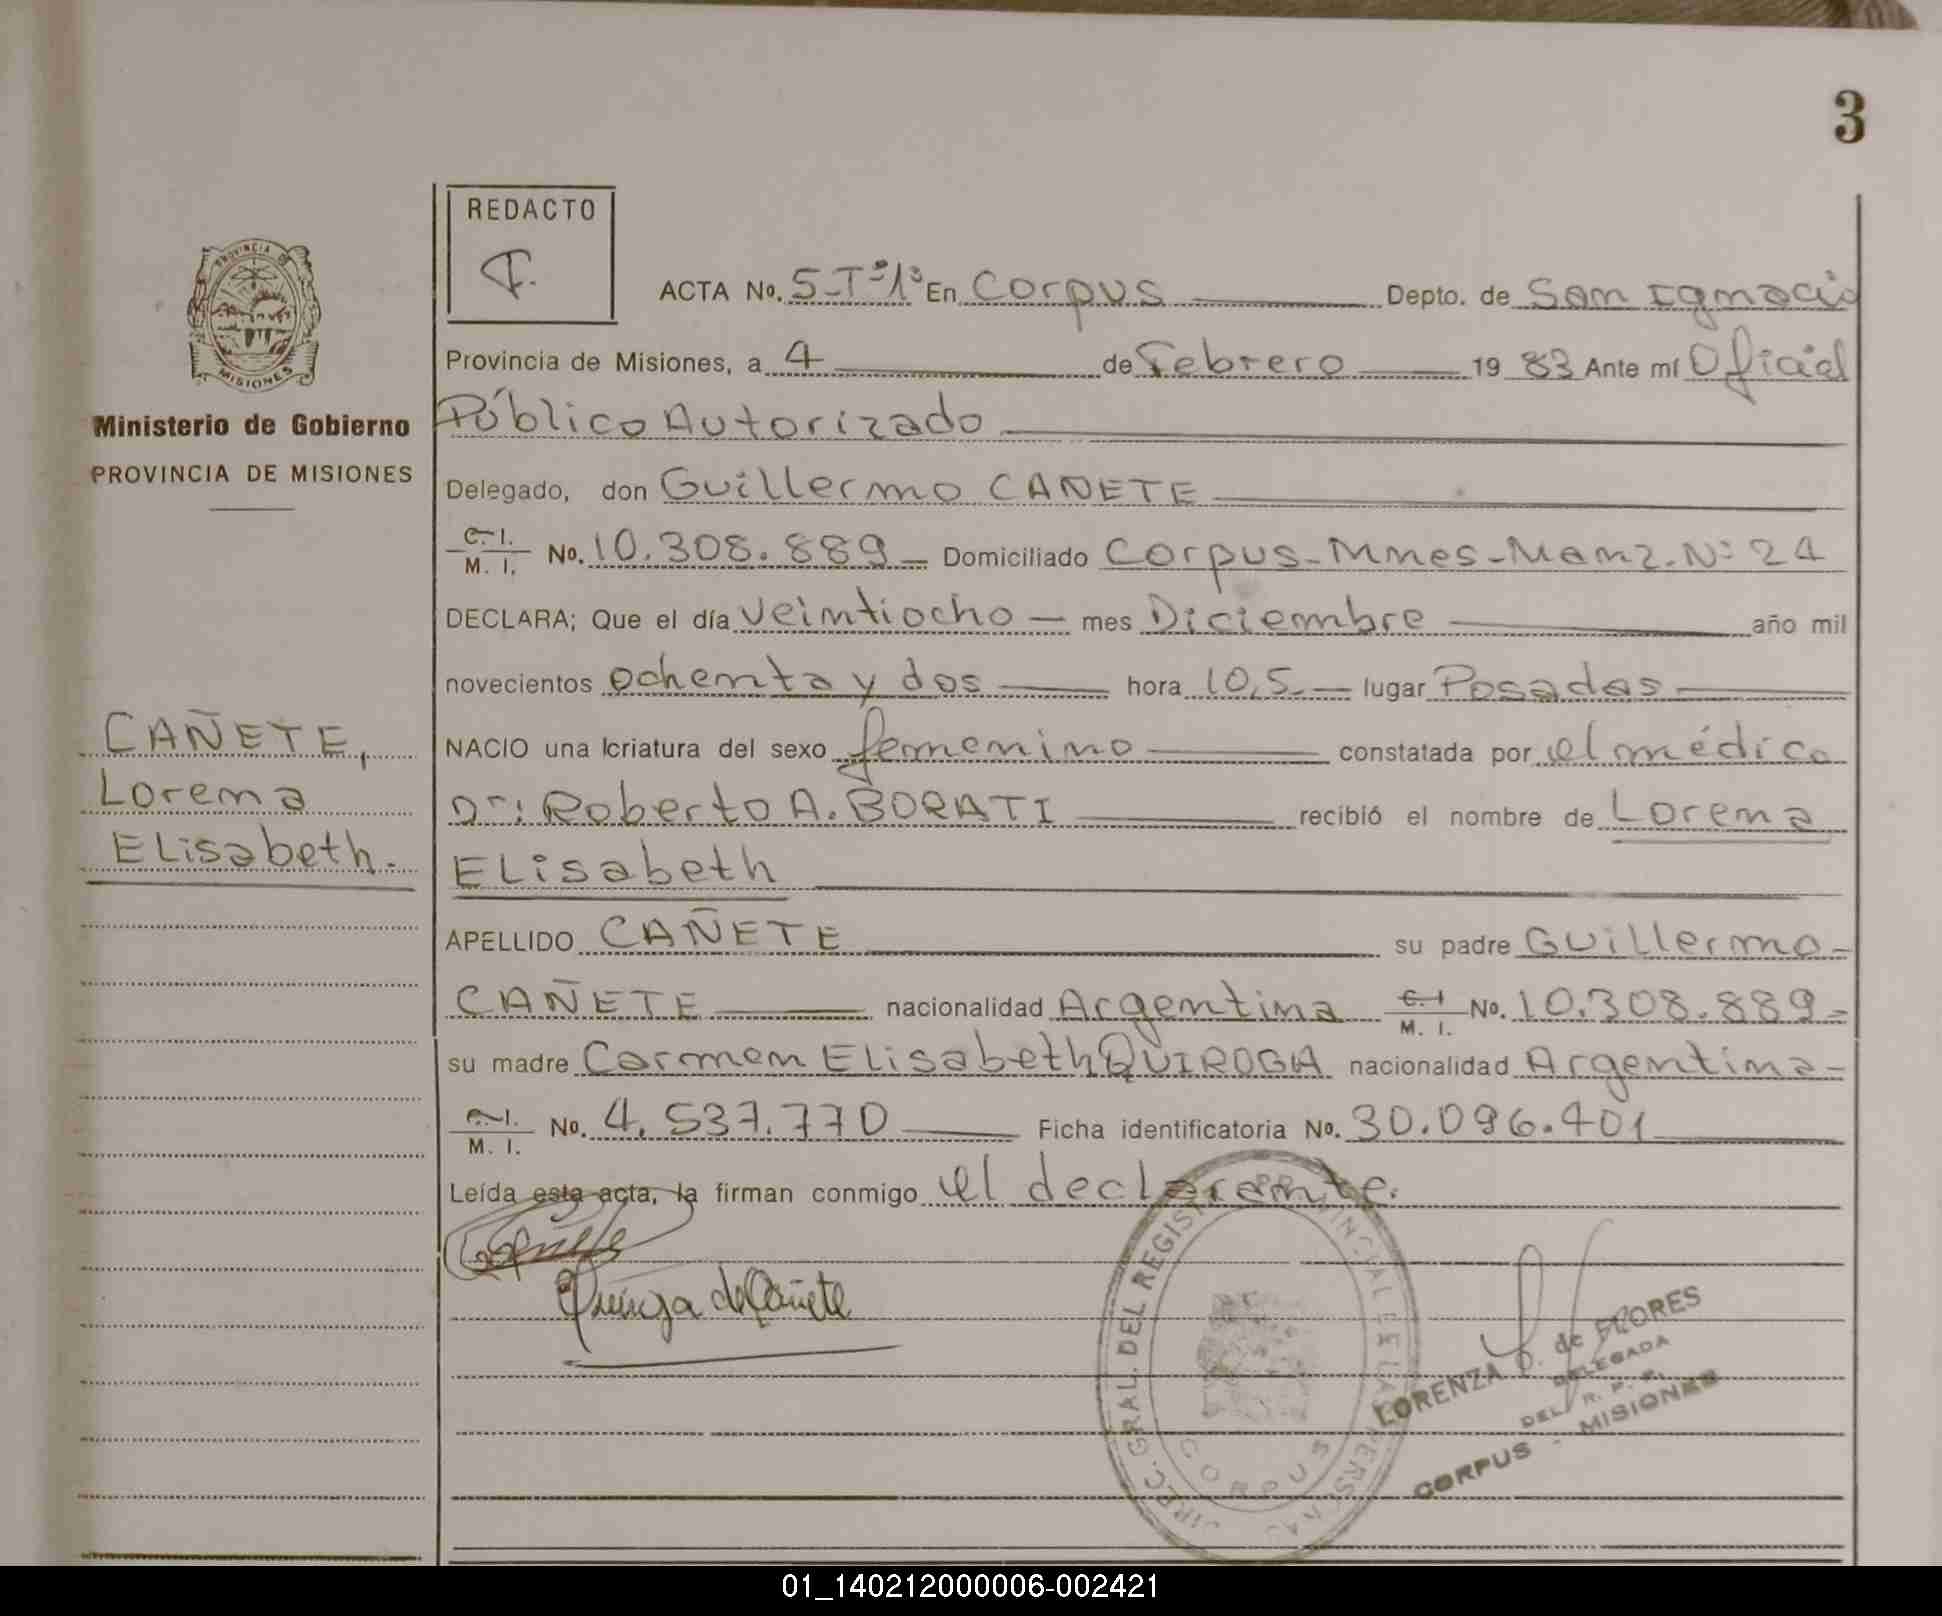 3
REDACTO
PROVINCIA DE
MISIONES
ACTA No. 5-Tº1º En Corpus Depto. de San Ignacio
Provincia de Misiones, a 4 de Febrero 1983 Ante mí Oficial
Ministerio de Gobierno
Público Autorizado
PROVINCIA DE MISIONES
Delegado, don Guillermo CAÑETE
C. I.
M. I. No. 10.308.889 Domiciliado Corpus-Mnes-Manz. Nº 24
DECLARA; Que el día veintiocho mes Diciembre año mil
novecientos ochenta y dos hora 10,5 lugar Posadas
CAÑETE,
Lorena
Elisabeth.
NACIO una criatura del sexo femenino constatada por el médico
Dr: Roberto A. BORATI recibió el nombre de Lorena
Elisabeth
APELLIDO CAÑETE su padre Guillermo
CAÑETE nacionalidad Argentina C. I. M. I. No. 10.308.889
su madre Carmen Elisabeth QUIROGA nacionalidad Argentina
C. I. M. I. No. 4.537.770 Ficha identificatoria No. 30.096.401
Leída esta acta, la firman conmigo el declarante.
Quiroga de Cañete
DIREC. GRAL. DEL REGISTRO PROVINCIAL DE LAS PERSONAS
CORPUS
LORENZA B. de FLORES
DELEGADA
DEL R. P. P.
CORPUS - MISIONES
01_140212000006-002421